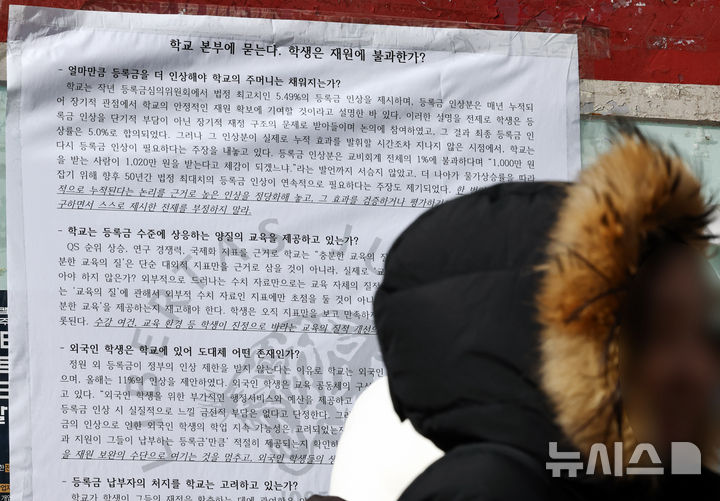 학교 본부에 묻는다. 학생은 재원에 불과한가?
- 얼마만큼 등록금을 더 인상해야 학교의 주머니는 채워지는가?
학교는 작년 등록금심의위원회에서 법정 최고치인 5.49%의 등록금 인상을 제시하며, 등록금 인상분은 매년 누적되
어 장기적 관점에서 학교의 안정적인 재원 확보에 기여할 것이라고 설명한 바 있다. 이러한 설명을 전제로 학생은 등
록금 인상을 단기적 부담이 아닌 장기적 재정 구조의 문제로 받아들이며 논의에 참여하였고, 그 결과 최종 등록금 인
상률은 5.0%로 합의되었다. 그러나 그 인상분이 실제로 누적 효과를 발휘할 시간조차 지나지 않은 시점에서, 학교는
다시 등록금 인상이 필요하다는 주장을 내놓고 있다. 등록금 인상분은 교비회계 전체의 1%에 불과하다며 "1,000만 원
을 받는 사람이 1,020만 원을 받는다고 체감이 되겠느냐."라는 발언까지 서슴지 않았고, 더 나아가 물가상승률을 따라
잡기 위해 향후 50년간 법정 최대치의 등록금 인상이 연속적으로 필요하다는 주장도 제기되었다. 한 번
적으로 누적된다는 논리를 근거로 높은 인상을 정당화해 놓고, 그 효과를 검증하거나 평가하기
구하면서 스스로 제시한 전제를 부정하지 말라.
- 학교는 등록금 수준에 상응하는 양질의 교육을 제공하고 있는가?
QS 순위 상승, 연구 경쟁력, 국제화 지표를 근거로 학교는 "충분한 교육의 질
분한 교육의 질'은 단순 대외적 지표만을 근거로 삼을 것이 아니라, 실제로
아야 하지 않은가? 외부적으로 드러나는 수치 자료만으로는 교육 자체의 질적
는 '교육의 질'에 관해서 외부적 수치 자료인 지표에만 초점을 둘 것이 아니
분한 교육'을 제공하는지 재고해야 한다. 학생은 오직 지표만을 보고 만족하지
롯된다. 수강 여건, 교육 환경 등 학생이 진정으로 바라는 교육의 질적 개선
- 외국인 학생은 학교에 있어 도대체 어떤 존재인가?
정원 외 등록금이 정부의 인상 제한을 받지 않는다는 이유로 학교는 외국인
으며, 올해는 11%의 인상을 제안하였다. 외국인 학생은 교육 공동체의 구성
고 있다. "외국인 학생을 위한 부가적인 행정서비스와 예산을 제공하고
등록금 인상 시 실질적으로 느낄 금전적 부담은 없다고 단정한다. 그러
금의 인상으로 인한 외국인 학생의 학업 지속 가능성은 고려되었는지
과 지원이 그들이 납부하는 등록금'만큼' 적절히 제공되는지 확인하
을 재원 보완의 수단으로 여기는 것을 멈추고, 외국인 학생들의
- 등록금 납부자의 처지를 학교는 고려하고 있는가?
뉴시스